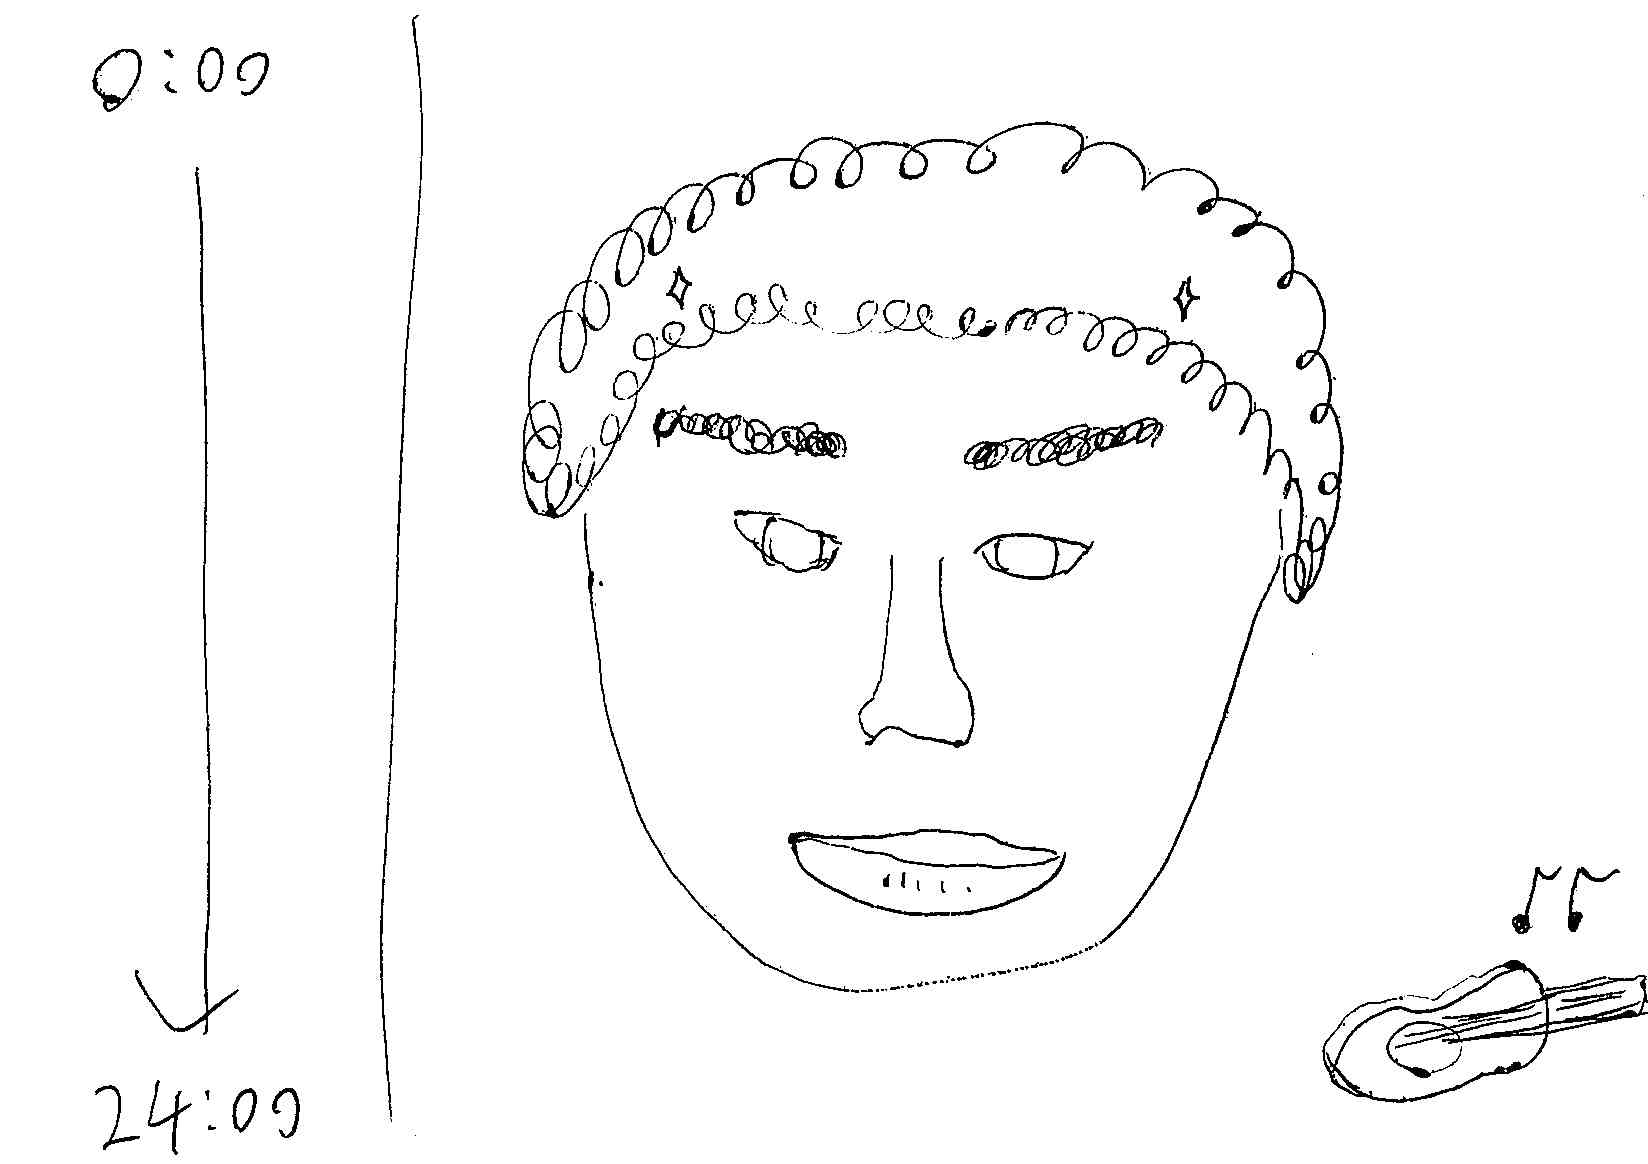 0:00
24:00